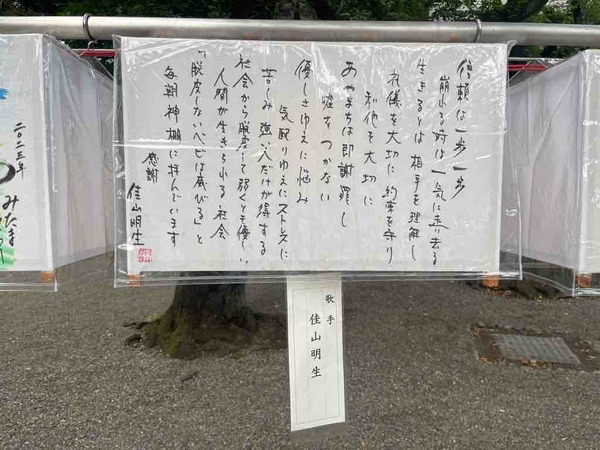 信頼は一歩一歩
崩れる時は一気に走り去る
生きるとは相手を理解し
礼儀を大切に 約束を守り
和他を大切に
あやまちは即謝罪し
嘘をつかない
優しさゆえに悩み
気配りゆえにストレスに
苦しみ 強い人だけが得する
社会から脱皮して弱くとも優しい
人間が生きられる社会
「脱皮しないヘビは滅びる」と
毎朝神棚に拝んでいます
感謝
佳山明生
歌手
佳山明生
二〇二三年
みたま